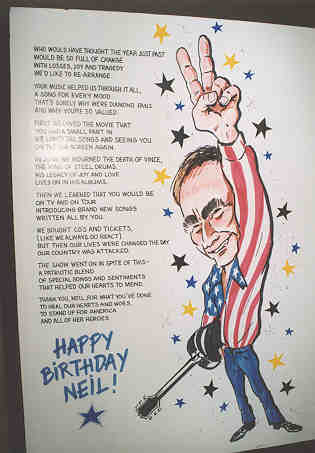 WHO WOULD HAVE THOUGHT THE YEAR JUST PAST
WOULD BE SO FULL OF CHANGE
WITH LOSSES, JOY AND TRAGEDY
WE'D LIKE TO RE-ARRANGE
YOUR MUSIC HELPED US THROUGH IT ALL,
A SONG FOR EVERY MOOD
THAT'S SURELY WHY WE'RE DIAMOND FANS
AND WHY YOU'RE SO VALUED
FIRST WE LOVED THE MOVIE THAT
YOU HAD A SMALL PART IN
WE LOVED THE SONGS AND SEEING YOU
ON THE BIG SCREEN AGAIN.
WE MOURNED THE DEATH OF VINCE,
THE KING OF STEEL DRUMS.
HIS LEGACY OF JOY AND LOVE
LIVES ON IN HIS ALBUMS.
THEN WE LEARNED THAT YOU WOULD BE
ON TV AND ON TOUR
INTRODUCING BRAND NEW SONGS
WRITTEN ALL BY YOU.
WE BOUGHT CD'S AND TICKETS,
(LIKE WE ALWAYS DO REACT)
BUT THEN OUR LIVES WERE CHANGED THE DAY
OUR COUNTRY WAS ATTACKED.
THE SHOW WENT ON IN SPITE OF THIS-
A PATRIOTIC BLEND
OF SPECIAL SONGS AND SENTIMENTS
THAT HELPED OUR HEARTS TO MEND.
THANK YOU, NEIL, FOR WHAT YOU'VE DONE
TO HEAL OUR HEARTS AND WOES,
TO STAND UP FOR AMERICA
AND ALL OF HER HEROES
HAPPY
BIRTHDAY
NEIL!